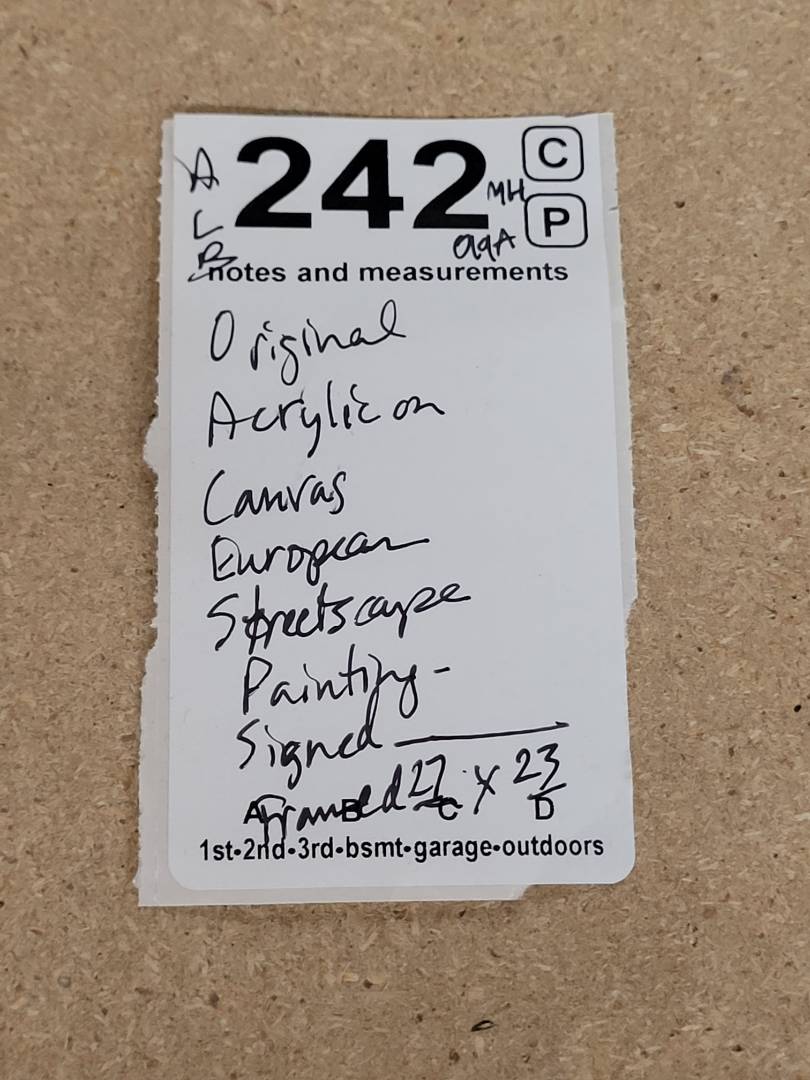 A 242 C
L MH P
B aqA
notes and measurements
Original
Acrylic on
Canvas
European
Streetscape
Painting -
Signed
Framed 27 x 23
A B C D
1st•2nd•3rd•bsmt•garage•outdoors